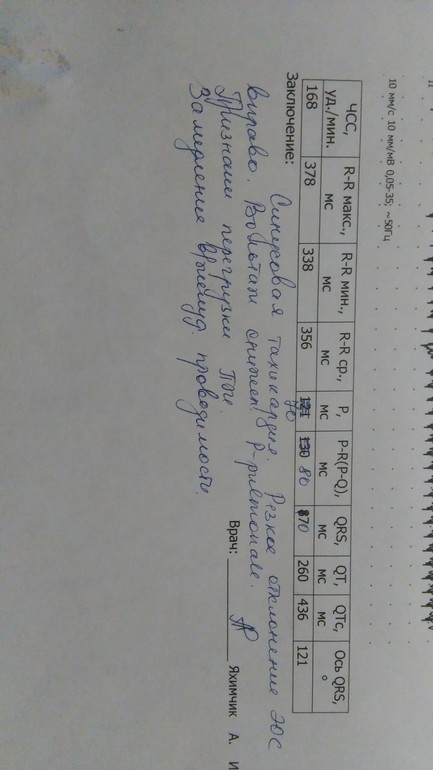 10 мм/с 10 мм/мВ 0,05-35; ~50Гц
ЧСС, уд./мин. R-R макс., мс R-R мин., мс R-R ср., мс P, мс P-R(P-Q), мс QRS, мс QT, мс QTc, мс Ось QRS, °
168 378 338 356 70 80 70 260 436 121
Заключение: Синусовая тахикардия. Резкое отклонение ЭОС
вправо. Вольтаж снижен. P-pulmonale.
Признаки перегрузки ПЖ.
Замедление в/желуд. проводимости.
Врач: Яхимчик А. И